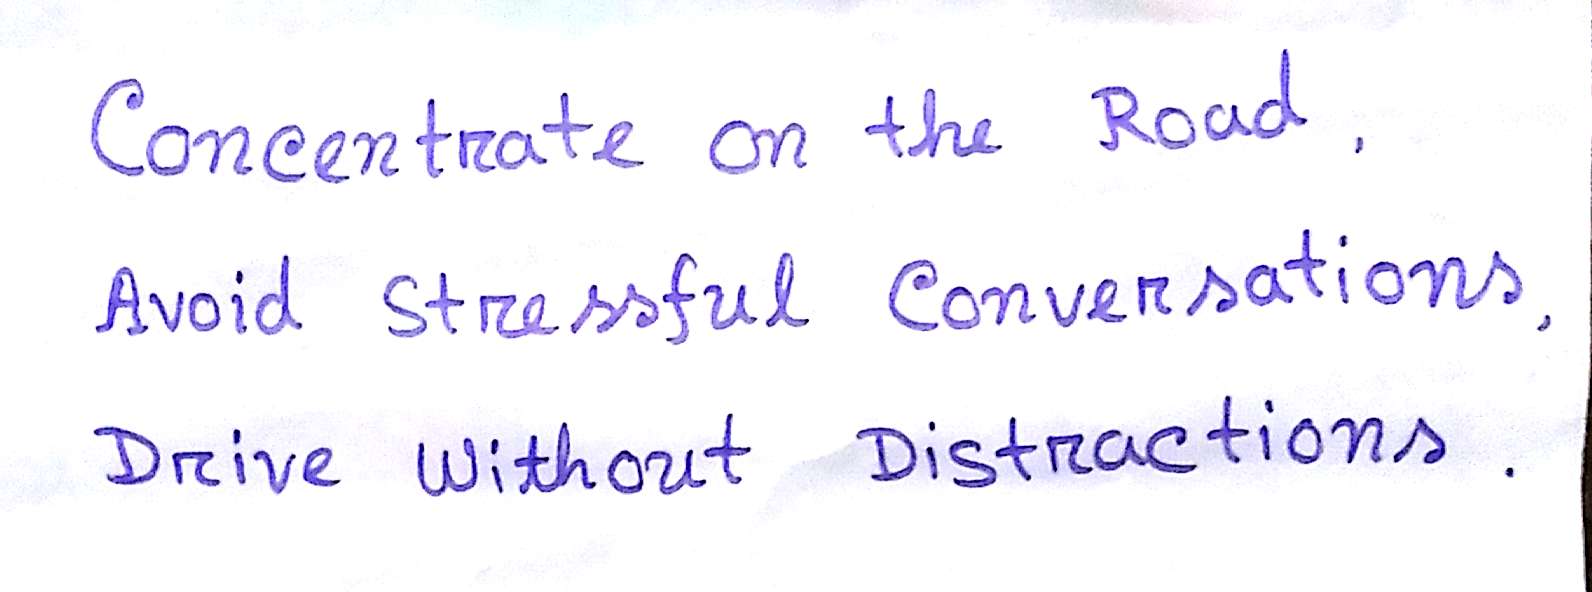 Concentrate on the Road,
Avoid Stressful Conversations,
Drive Without Distractions.